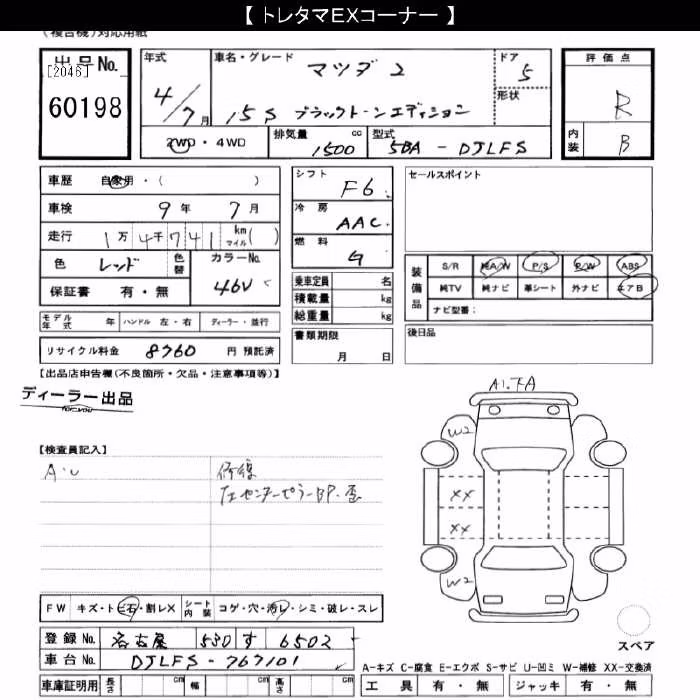 【 トレタマEXコーナー 】
(複合機)対応用紙
出品No.
[2046]
60198
年式
4/7月
車名・グレード
マツダ2
15S ブラックトーンエディション
ドア
5
形状
評価点
R
内装
B
2WD ・ 4WD
排気量 1500 cc
型式 5BA - DJLFS
車歴 自家用 ・ ( )
車検 9年 7月
走行 1万4千741 km マイル ( )
色 レッド 色替
カラーNo. 46V
保証書 有 ・ 無
モデル年式 年 ハンドル 左・右 ディーラー・並行
リサイクル料金 8760 円 預託済
シフト F6
冷房 AAC
燃料 G
乗車定員 名
積載量 kg
総重量 kg
書類期限
月 日
セールスポイント
装備品
S/R 純A/W P/S P/W ABS
純TV 純ナビ 革シート 外ナビ エアB
ナビ型番:
後日品
【出品店申告欄(不良箇所・欠品・注意事項等)】
ディーラー出品
for you
【検査員記入】
A・U
修復
左センターピラーBP・歪
A1.下A
W2
XX
XX
W2
スペア
FW キズ・トビ石・割レX
シート内装 コゲ・穴・汚レ・シミ・破レ・スレ
登録No. 名古屋 530 す 6502
車台No. DJLFS - 767101
A-キズ C-腐食 E-エクボ S-サビ U-凹ミ W-補修 XX-交換済
車庫証明用 長さ cm 幅 cm 高さ cm
工具 有 ・ 無 ジャッキ 有 ・ 無